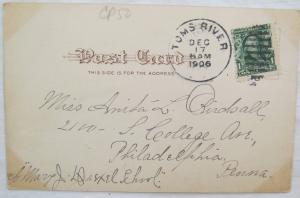 CP50
TOMS RIVER
DEC
17
1906
Post Card
THIS SIDE IS FOR THE ADDRESS
Miss Anita L. Birdsall,
2110 - S. College Ave,
Philadelphia,
Penna.
Mary J. Drexel School